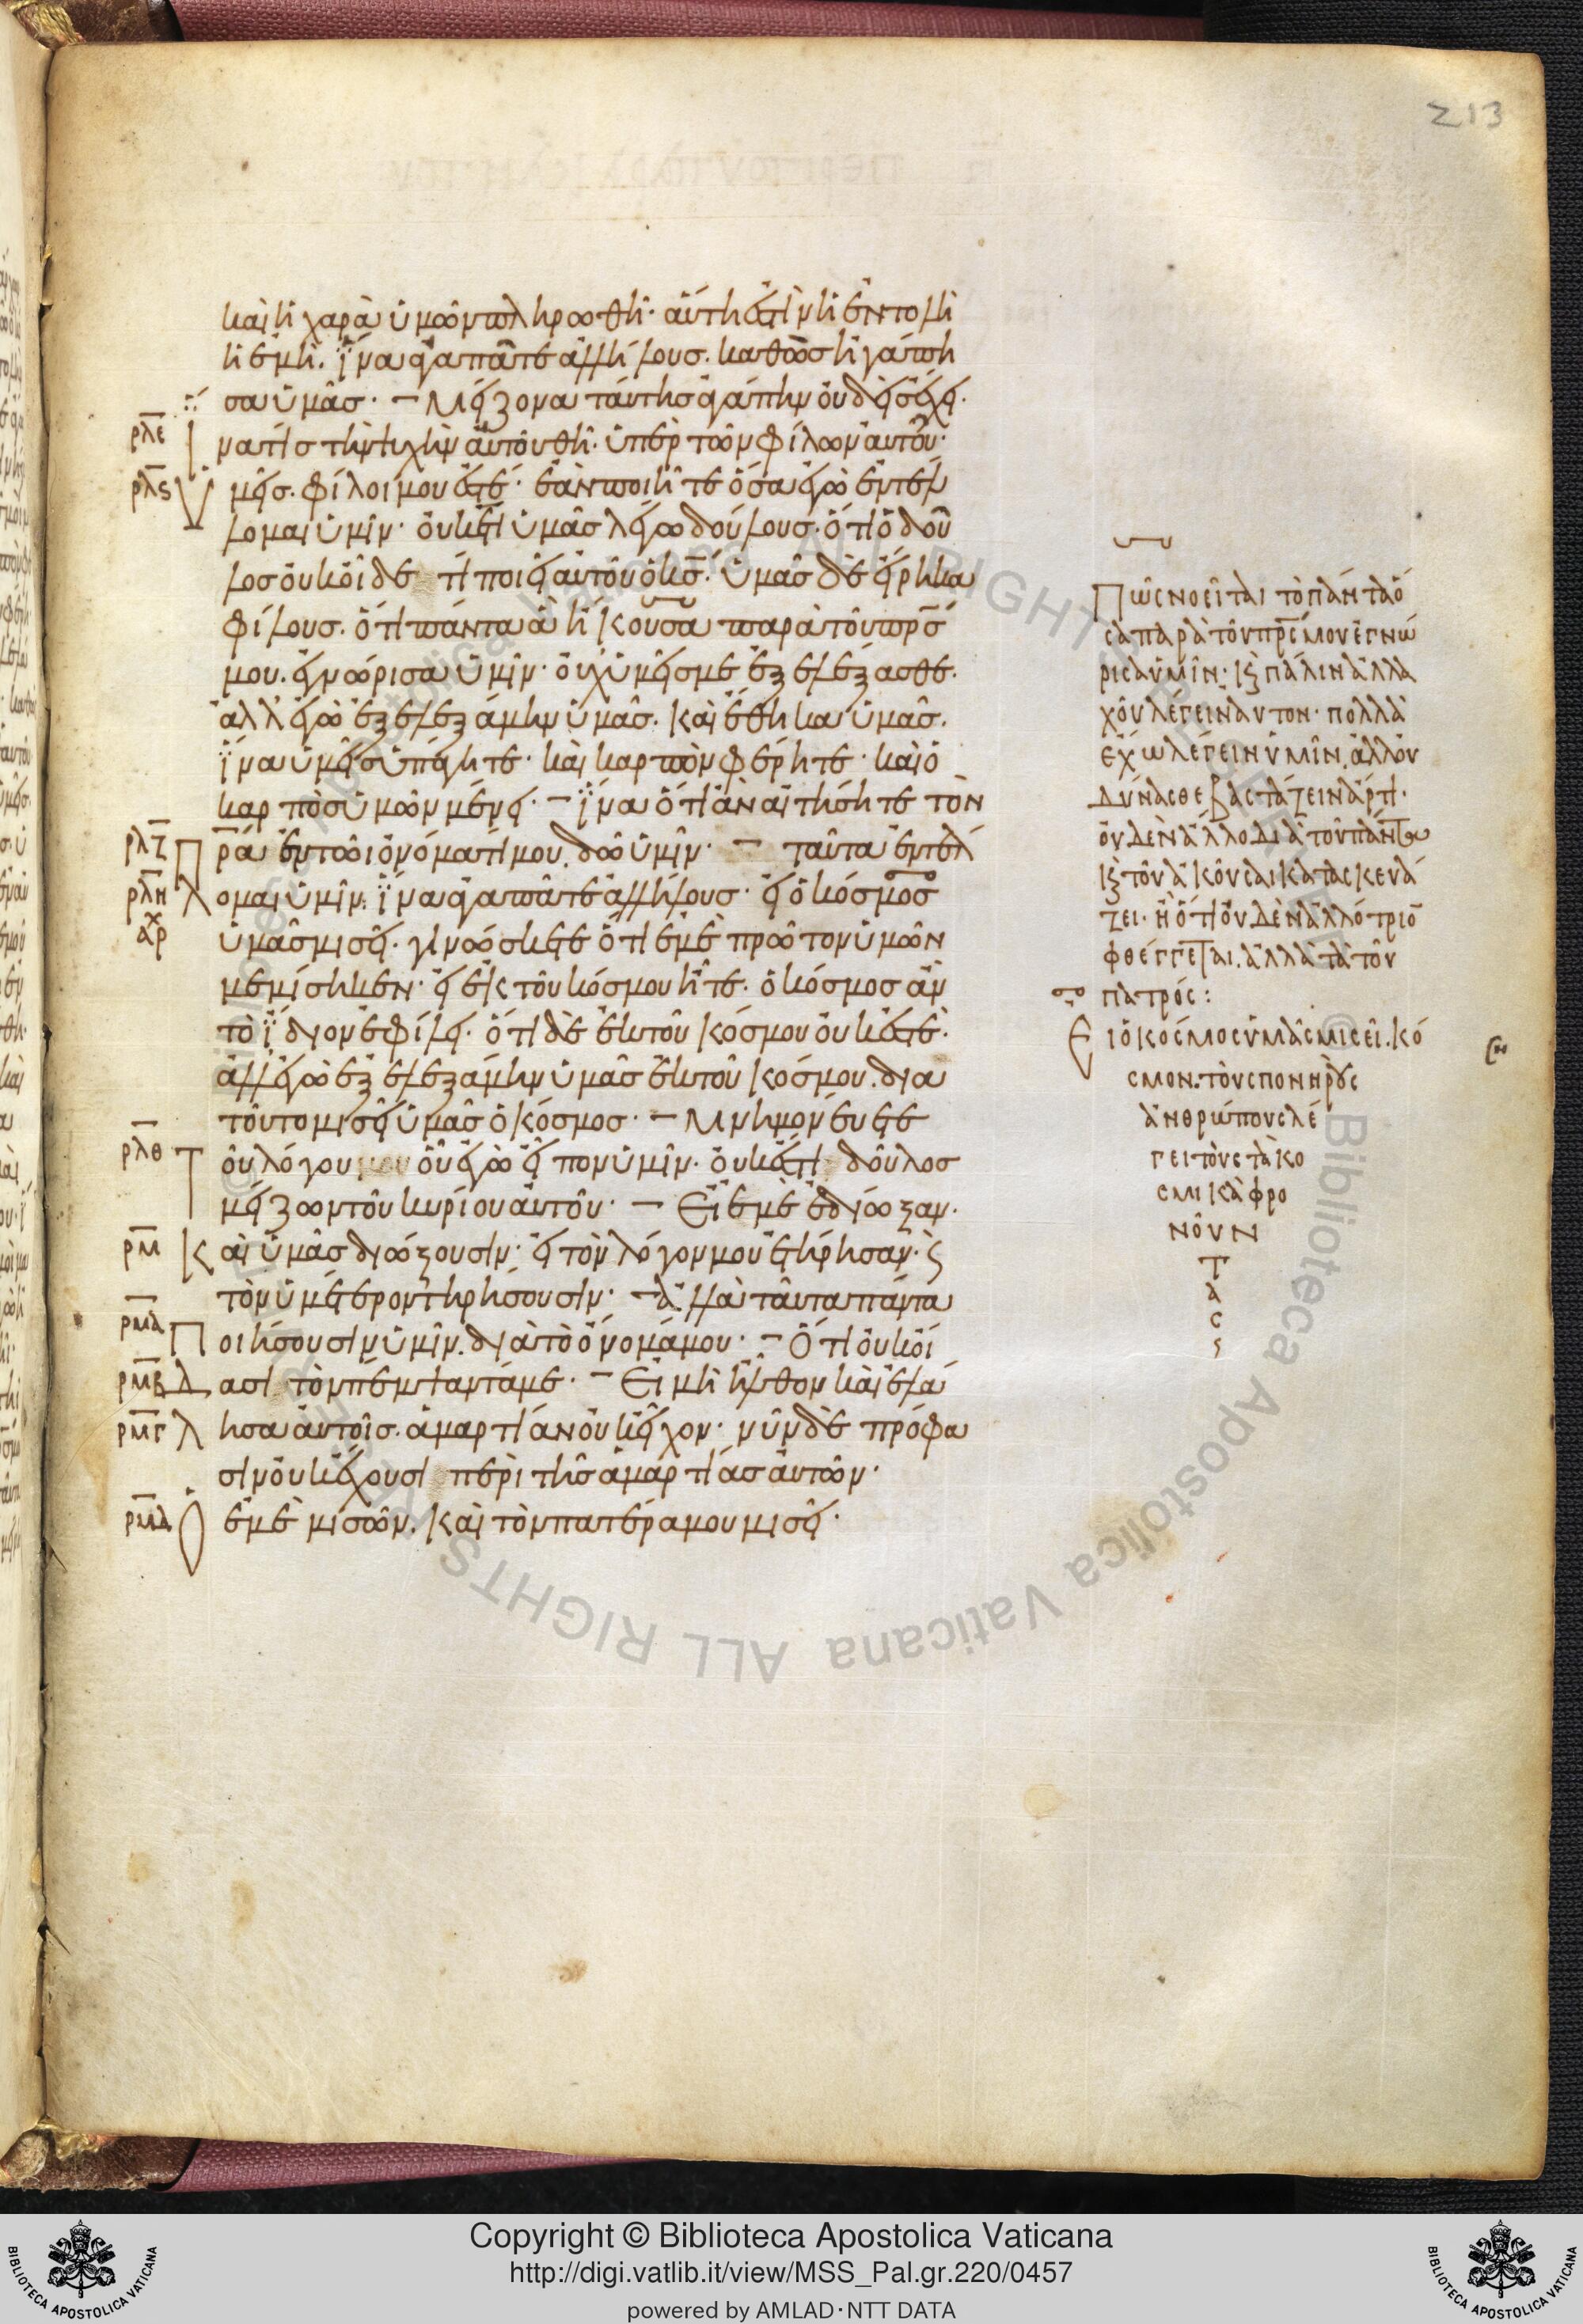 213
καὶ ἡ χαρὰ ὑμῶν πληρωθῆ· αὕτη ἐστὶν ἡ ἐντολὴ
ἡ ἐμὴ. ἵνα ἀγαπᾶτε ἀλλήλους. καθὼς ἠγάπη
σα ὑμᾶς· – Μείζονα ταύτης ἀγάπην οὐδεὶς ἔχει·
ρλε ἵνα τίς τὴν ψυχὴν αὐτοῦ θῆ· ὑπὲρ τῶν φίλων αὐτοῦ·
ρλς ὑμεῖς. φίλοι μου ἐστέ· ἐὰν ποιῆτε ὅσα ἐγὼ ἐντέλ
λομαι ὑμῖν· οὐκέτι ὑμᾶς λέγω δούλους. ὅτι ὁ δοῦ
λος οὐκ οἶδε τί ποιεῖ αὐτοῦ ὁ κς. ὑμᾶς δὲ εἴρηκα
φίλους. ὅτι πάντα ἃ ἤκουσα παρὰ τοῦ πρς
μου. ἐγνώρισα ὑμῖν· οὐχ ὑμεῖς με ἐξελέξασθε.
ἀλλ' ἐγὼ ἐξελεξάμην ὑμᾶς. καὶ ἔθηκα ὑμᾶς.
ἵνα ὑμεῖς ὑπάγητε· καὶ καρπὸν φέρητε· καὶ ὁ
καρπὸς ὑμῶν μένει· – ἵνα ὅτι ἂν αἰτήσητε τὸν
ρλζ πρα ἐν τῶι ὀνόματί μου. δῶ ὑμῖν· – ταῦτα ἐντέλ
ρλη λομαι ὑμῖν. ἵνα ἀγαπᾶτε ἀλλήλους· εἰ ὁ κόσμος
ὑμᾶς μισεῖ· γινώσκετε ὅτι ἐμὲ πρῶτον ὑμῶν
μεμίσηκεν· εἰ ἐκ τοῦ κόσμου ἦτε. ὁ κόσμος ἂν
τὸ ἴδιον ἐφίλει· ὅτι δὲ ἐκ τοῦ κόσμου οὐκ ἐστέ·
ἀλλ ἐγὼ ἐξελεξάμην ὑμᾶς ἐκ τοῦ κόσμου. δια
τοῦτο μισεῖ ὑμᾶς ὁ κόσμος· – Μνημονεύετε
ρλθ τοῦ λόγου μου οὗ ἐγὼ εἶπον ὑμῖν· οὐκ ἔστι δοῦλος
μείζων τοῦ κυρίου αὐτοῦ· – Εἰ ἐμὲ ἐδίωξαν·
ρμ καὶ ὑμᾶς διώξουσιν· εἰ τὸν λόγον μου ἐτήρησαν· ϗ
τὸν ὑμέτερον τηρήσουσιν· – ἀλλὰ ταῦτα πάντα
ρμα ποιήσουσιν ὑμῖν. διὰ τὸ ὄνομά μου· – Ὅτι οὐκ οἴ
ρμβ δασι τὸν πέμψαντά με· – Εἰ μὴ ἦλθον καὶ ἐλά
ρμγ λησα αὐτοῖς. ἁμαρτίαν οὐκ εἶχον· νῦν δὲ πρόφα
σιν οὐκ ἔχουσι περὶ τῆς ἁμαρτίας αὐτῶν·
ρμδ ὁ ἐμὲ μισῶν. καὶ τὸν πατέρα μου μισεῖ·
Πῶς νοεῖται τὸ πάντα ὅ
σα παρὰ τοῦ πρς μου ἐγνώ
ρισα ὑμῖν· ϗ πάλιν ἀλλα
χοῦ λέγειν αυτον· πολλὰ
ἔχω λέγειν ὑμῖν. ἀλλ οὐ
δύνασθε βαστάζειν ἄρτι·
οὐδὲν ἄλλο διὰ τοῦ πάντα
ϗ τοῦ ἀκοῦσαι κατασκευά
ζει· ἢ ὅτι οὐδὲν ἀλλότριο
φθέγγεται. ἀλλὰ τὰ τοῦ
πατρός:
Εἰ ὁ κόσμος ὑμᾶς μισεῖ. κό
σμον. τοὺς πονηροὺς
ἀνθρώπους λέ
γει τοὺς τὰ κο
σμικὰ φρο
νοῦν
τ
α
ς
Copyright © Biblioteca Apostolica Vaticana
http://digi.vatlib.it/view/MSS_Pal.gr.220/0457
powered by AMLAD·NTT DATA
BIBLIOTECA APOSTOLICA VATICANA
BIBLIOTECA APOSTOLICA VATICANA